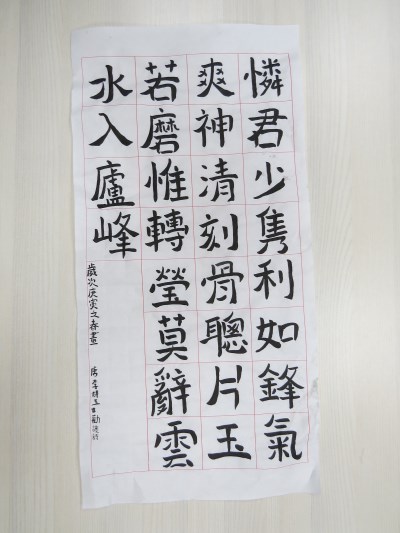 憐君少雋利如鋒氣
爽神清刻骨聰片玉
若磨惟轉瑩莫辭雲
水入廬峰
歲次庚寅之春書